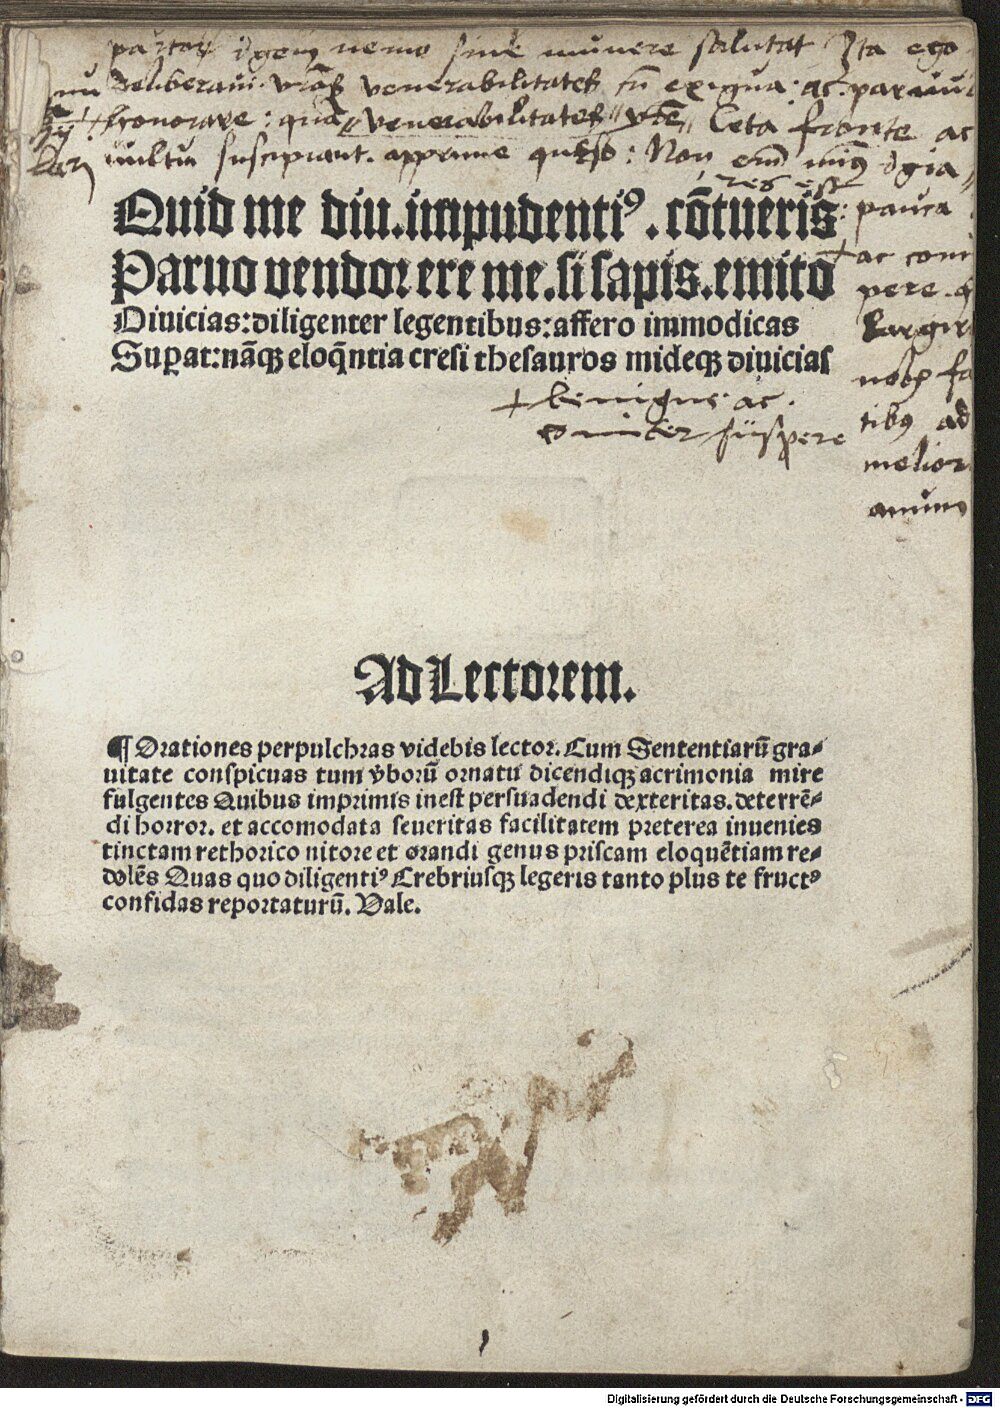 nemo sine munere salutat Ita ego
deliberavi venerabilitates exigua: ac parvu
honorare: venerabilitates leta fronte ac
vultu suscipiant. apprime queso: Non
res est
: pauca
Quid me diu.impudentiꝰ.cõtueris
Paruo vendor ere me.si sapis.emito
+ac comi
pere.
Diuicias:diligenter legentibus:affero immodicas
largiri
Suꝑat:nãqꝫ eloq̃ntia cresi thesauros mideqꝫ diuicias
+ benigne ac.
comiter suscipere
tibꝰ ad
melior
animum
Ad Lectorem.
¶ Orationes perpulchras videbis lector. Cum Sententiarũ gra⸗
uitate conspicuas tum v̈borũ ornatu dicendiqꝫ acrimonia mire
fulgentes Quibus imprimis inest persuadendi dexteritas. deterrẽ⸗
di horror. et accomodata seueritas facilitatem preterea inuenies
tinctam rethorico nitore et orandi genus priscam eloquẽtiam re⸗
dolẽs Quas quo diligentiꝰ Crebriusqꝫ legeris tanto plus te fructꝰ
confidas reportaturũ. Vale.
Digitalisierung gefördert durch die Deutsche Forschungsgemeinschaft - DFG